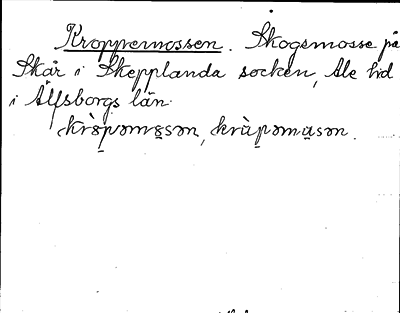 Kroppemossen. Skogsmosse på
Skår i Skepplanda socken, Ale hd
i Älfsborgs län.
krò̤pəmo̤sən, krùpəmusən.